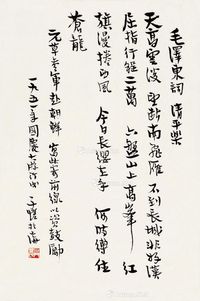 毛澤東詞 清平樂
天高雲淡 望斷南飛雁 不到長城非好漢
屈指行程二萬 六盤山上高峯 紅
旗漫捲西風 今日長纓在手 何時縛住
蒼龍
元草參軍赴朝鮮 寫此寄前線以資鼓勵
一九五一年國慶 子愷於上海